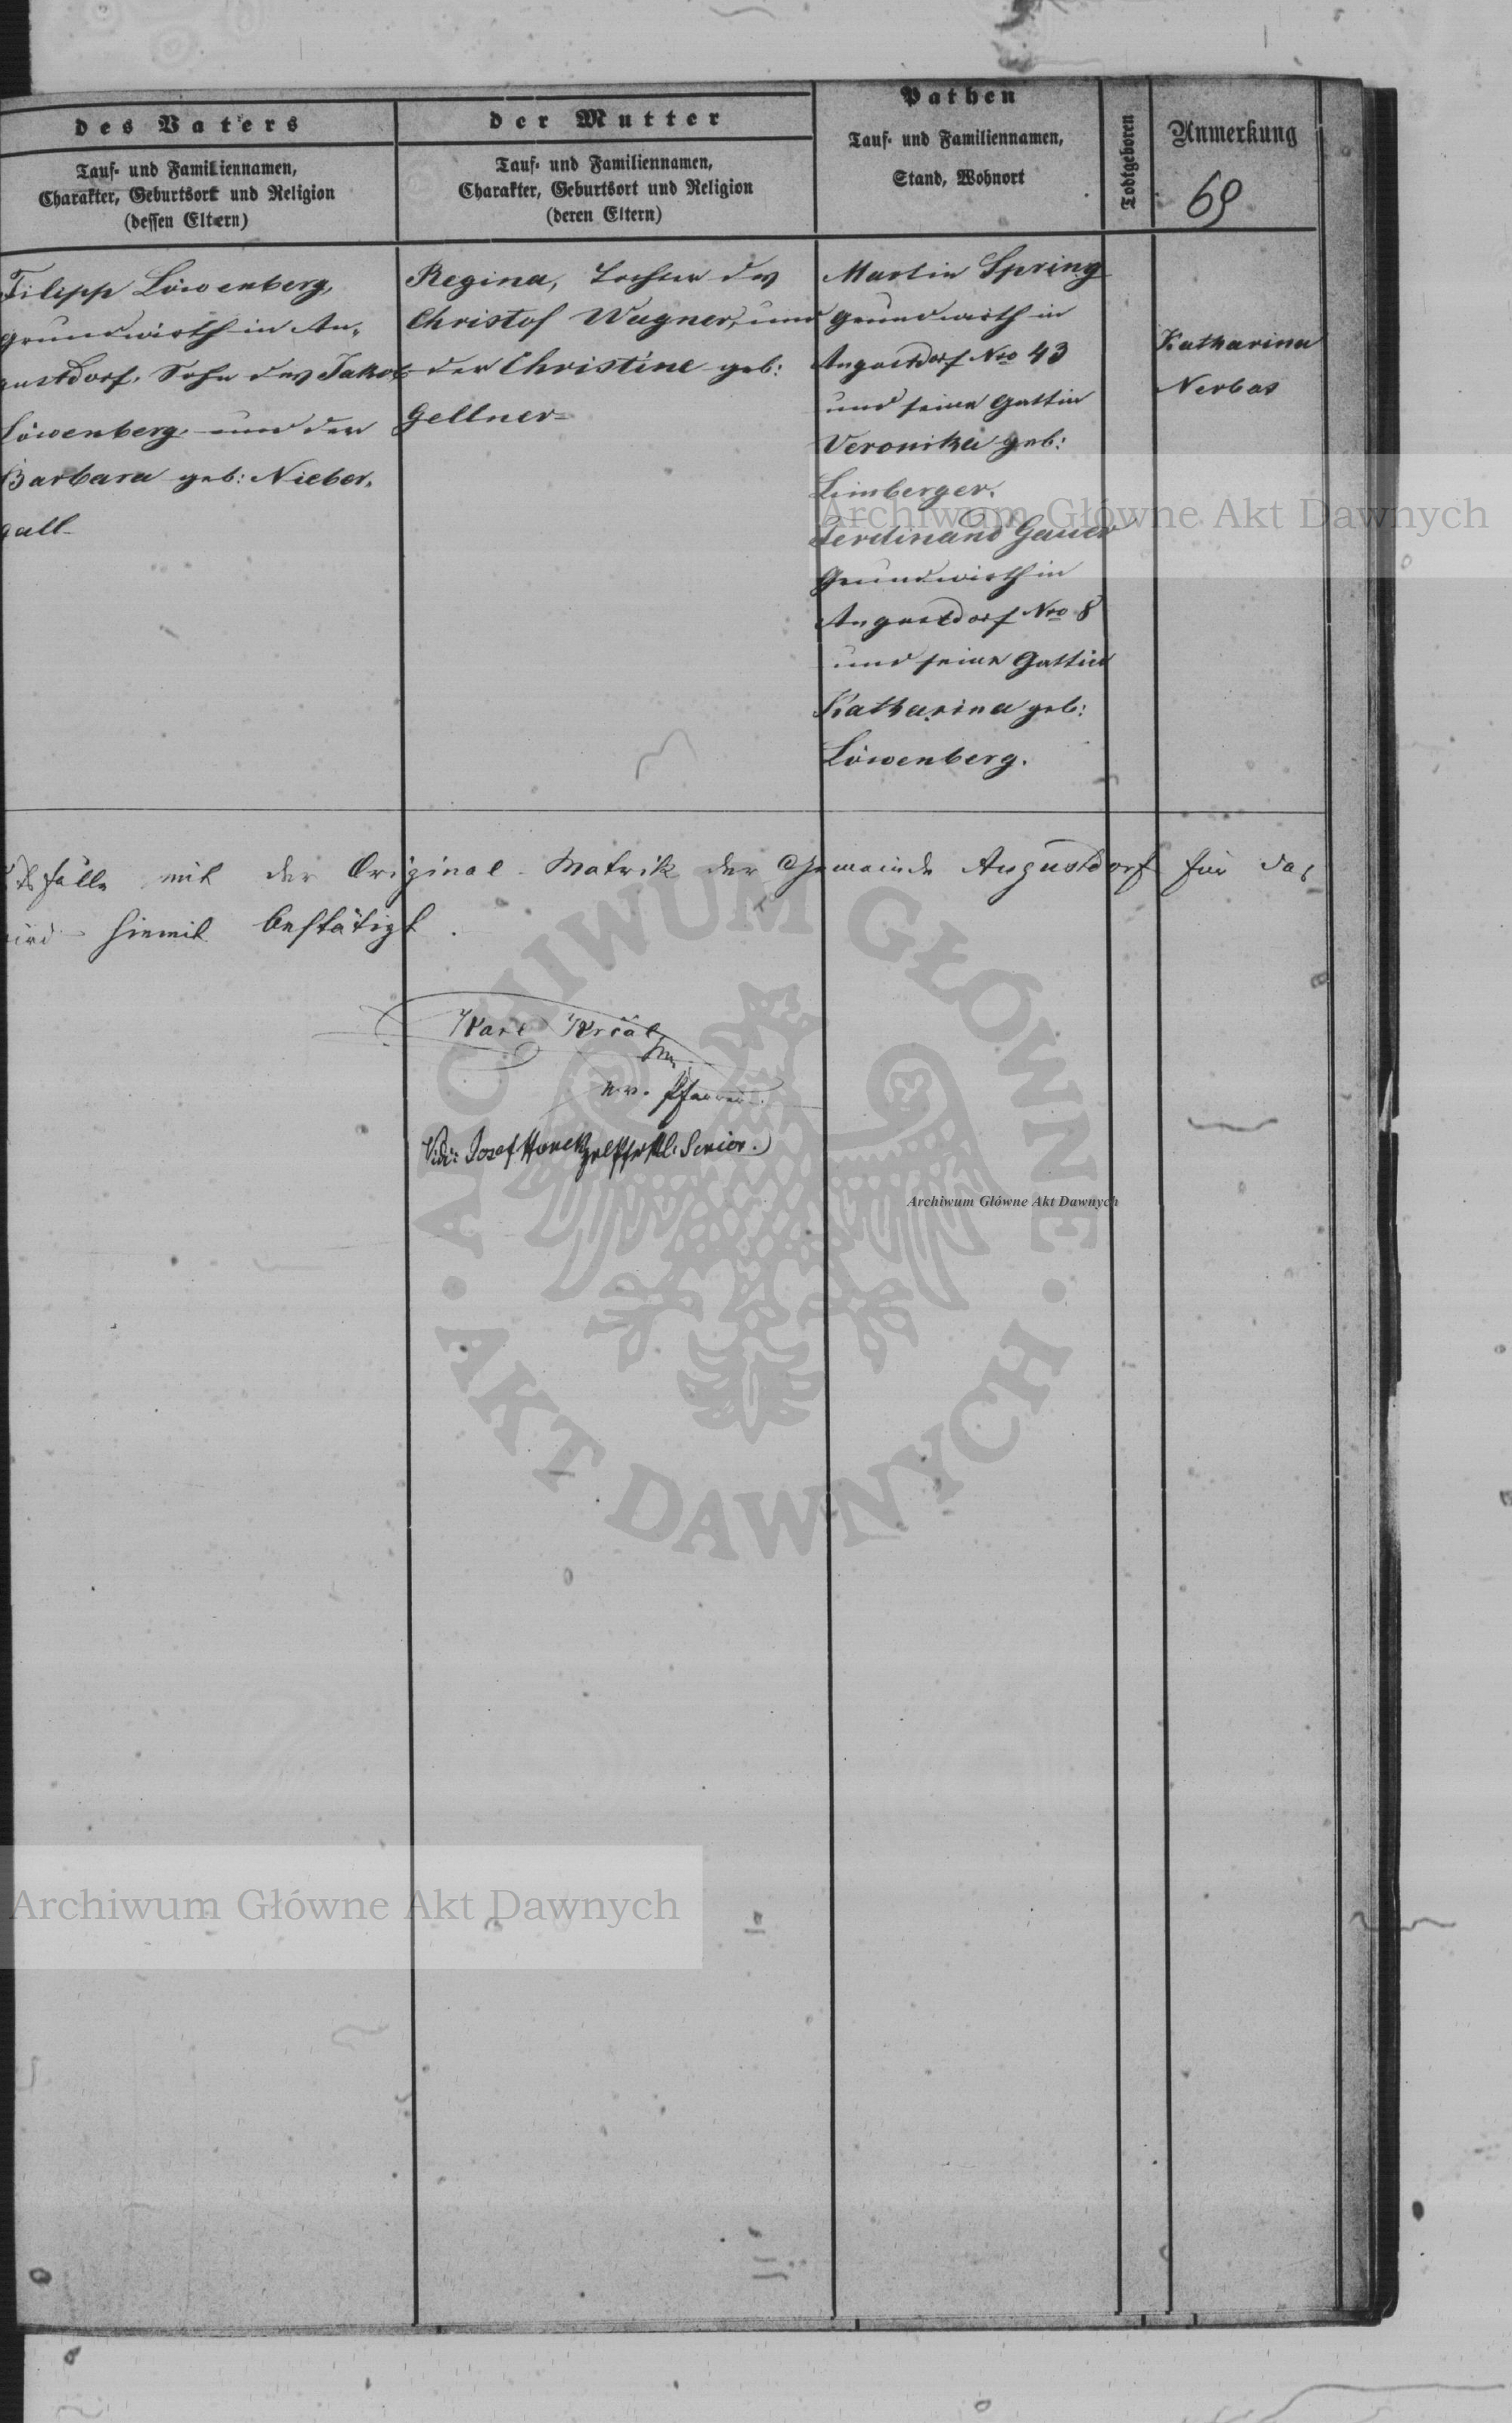 des Vaters
Tauf- und Familiennamen,
Charakter, Geburtsort und Religion
(dessen Eltern)
der Mutter
Tauf- und Familiennamen,
Charakter, Geburtsort und Religion
(deren Eltern)
Pathen
Tauf- und Familiennamen,
Stand, Wohnort
Todtgeboren
Anmerkung
69
Filipp Löwenberg,
Grundwirth in Au-
gustdorf, Sohn des Jakob
Löwenberg und der
Barbara geb: Nieber-
gall
Regina, Tochter des
Christof Wagner, und
der Christine geb:
Gellner
Martin Spring
Grundwirth in
Augustdorf Nro 43
und seine Gattin
Veronika geb:
Limberger.
Ferdinand Gauer
Grundwirth in
Augustdorf Nro 8
und seine Gattin
Katharina geb:
Löwenberg.
Katharina
Nerbas
mit der Original-Matrik der Gemeinde Augustdorf für das
hiemit bestätigt.
Karl Krčal
Pfarrer.
Vidi: Josef Senior.
Archiwum Główne Akt Dawnych
ARCHIWUM GŁÓWNE
AKT DAWNYCH
Archiwum Główne Akt Dawnych
Archiwum Główne Akt Dawnych